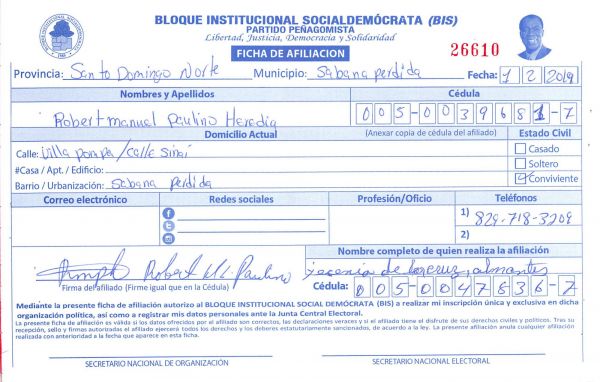 BLOQUE INSTITUCIONAL SOCIALDEMÓCRATA (BIS)
PARTIDO PEÑAGOMISTA
Libertad, Justicia, Democracia y Solidaridad
FICHA DE AFILIACION
26610
Provincia: Santo Domingo Norte Municipio: Sabana perdida Fecha: 1 2 2019
Nombres y Apellidos Cédula
Robert manuel Paulino Heredia 005-0039681-7
Domicilio Actual (Anexar copia de cédula del afiliado) Estado Civil
Calle: Villa pompa/calle Sinai Casado
#Casa / Apt. / Edificio: Soltero
Barrio / Urbanización: Sabana perdida Conviviente
Correo electrónico Redes sociales Profesión/Oficio Teléfonos
1) 829-718-3209
2)
Nombre completo de quien realiza la afiliación
Robert M. Paulino yesenia de la cruz almantes
Firma del afiliado (Firme igual que en la Cédula) Cédula: 005-0047636-7
Mediante la presente ficha de afiliación autorizo al BLOQUE INSTITUCIONAL SOCIAL DEMÓCRATA (BIS) a realizar mi inscripción única y exclusiva en dicha
organización política, así como a registrar mis datos personales ante la Junta Central Electoral.
La presente ficha de afiliación es válida si los datos ofrecidos por el afiliado son correctos, las declaraciones veraces y si el afiliado tiene el disfrute de sus derechos civiles y políticos. Tras su
recepción, sello y firmas autorizadas el afiliado ejercerá todos los derechos y los deberes estatutariamente sancionados, de acuerdo a la ley. La presente afiliación anula cualquier afiliación
realizada con anterioridad a la fecha que aparece en esta ficha.
SECRETARIO NACIONAL DE ORGANIZACIÓN SECRETARIO NACIONAL ELECTORAL